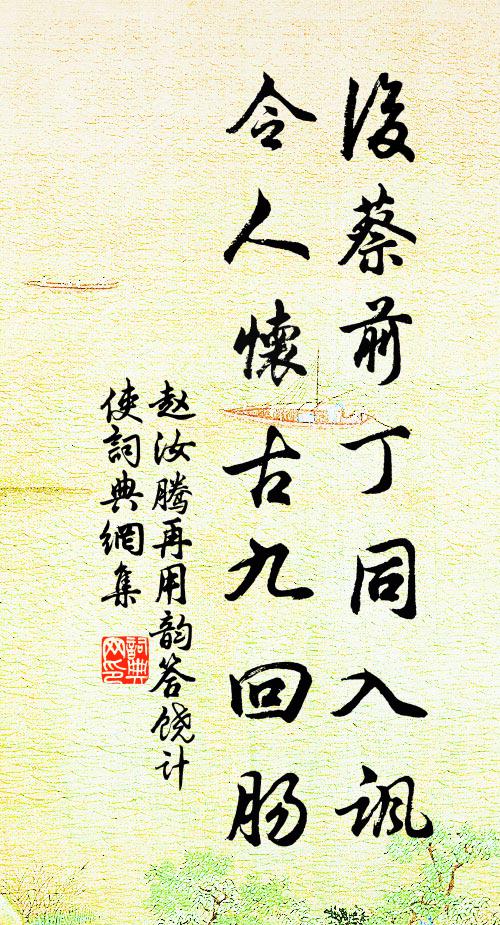 後蔡前丁同入諷
令人懷古九回肠
赵汝腾再用韵答饶计
使詞典網集
詞典網印